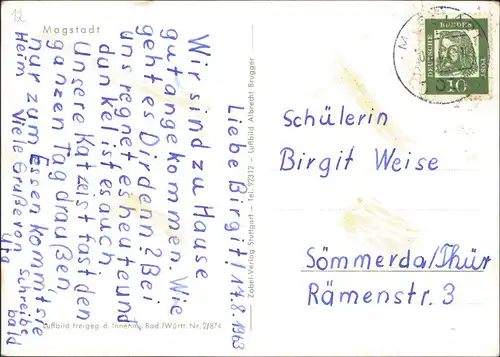 12
Magstadt
Liebe Birgit! 17.8.1963
Wir sind zu Hause
gut angekommen. Wie
geht es Dir denn? Bei
uns regnet es heute und
dunkel ist es auch.
Unsere Katze ist fast den
ganzen Tag draußen,
nur zum Essen kommt sie
Heim Viele Grüße von Schreibe
Uta bald
Luftbild freigeg. d. Innenm. Bad./Württ. Nr. 2/874
Zobel-Verlag Stuttgart – Tel. 92312 – Luftbild Albrecht Brugger
DEUTSCHE BUNDES POST
10
Schülerin
Birgit Weise
Sömmerda/Thür
Rämenstr. 3